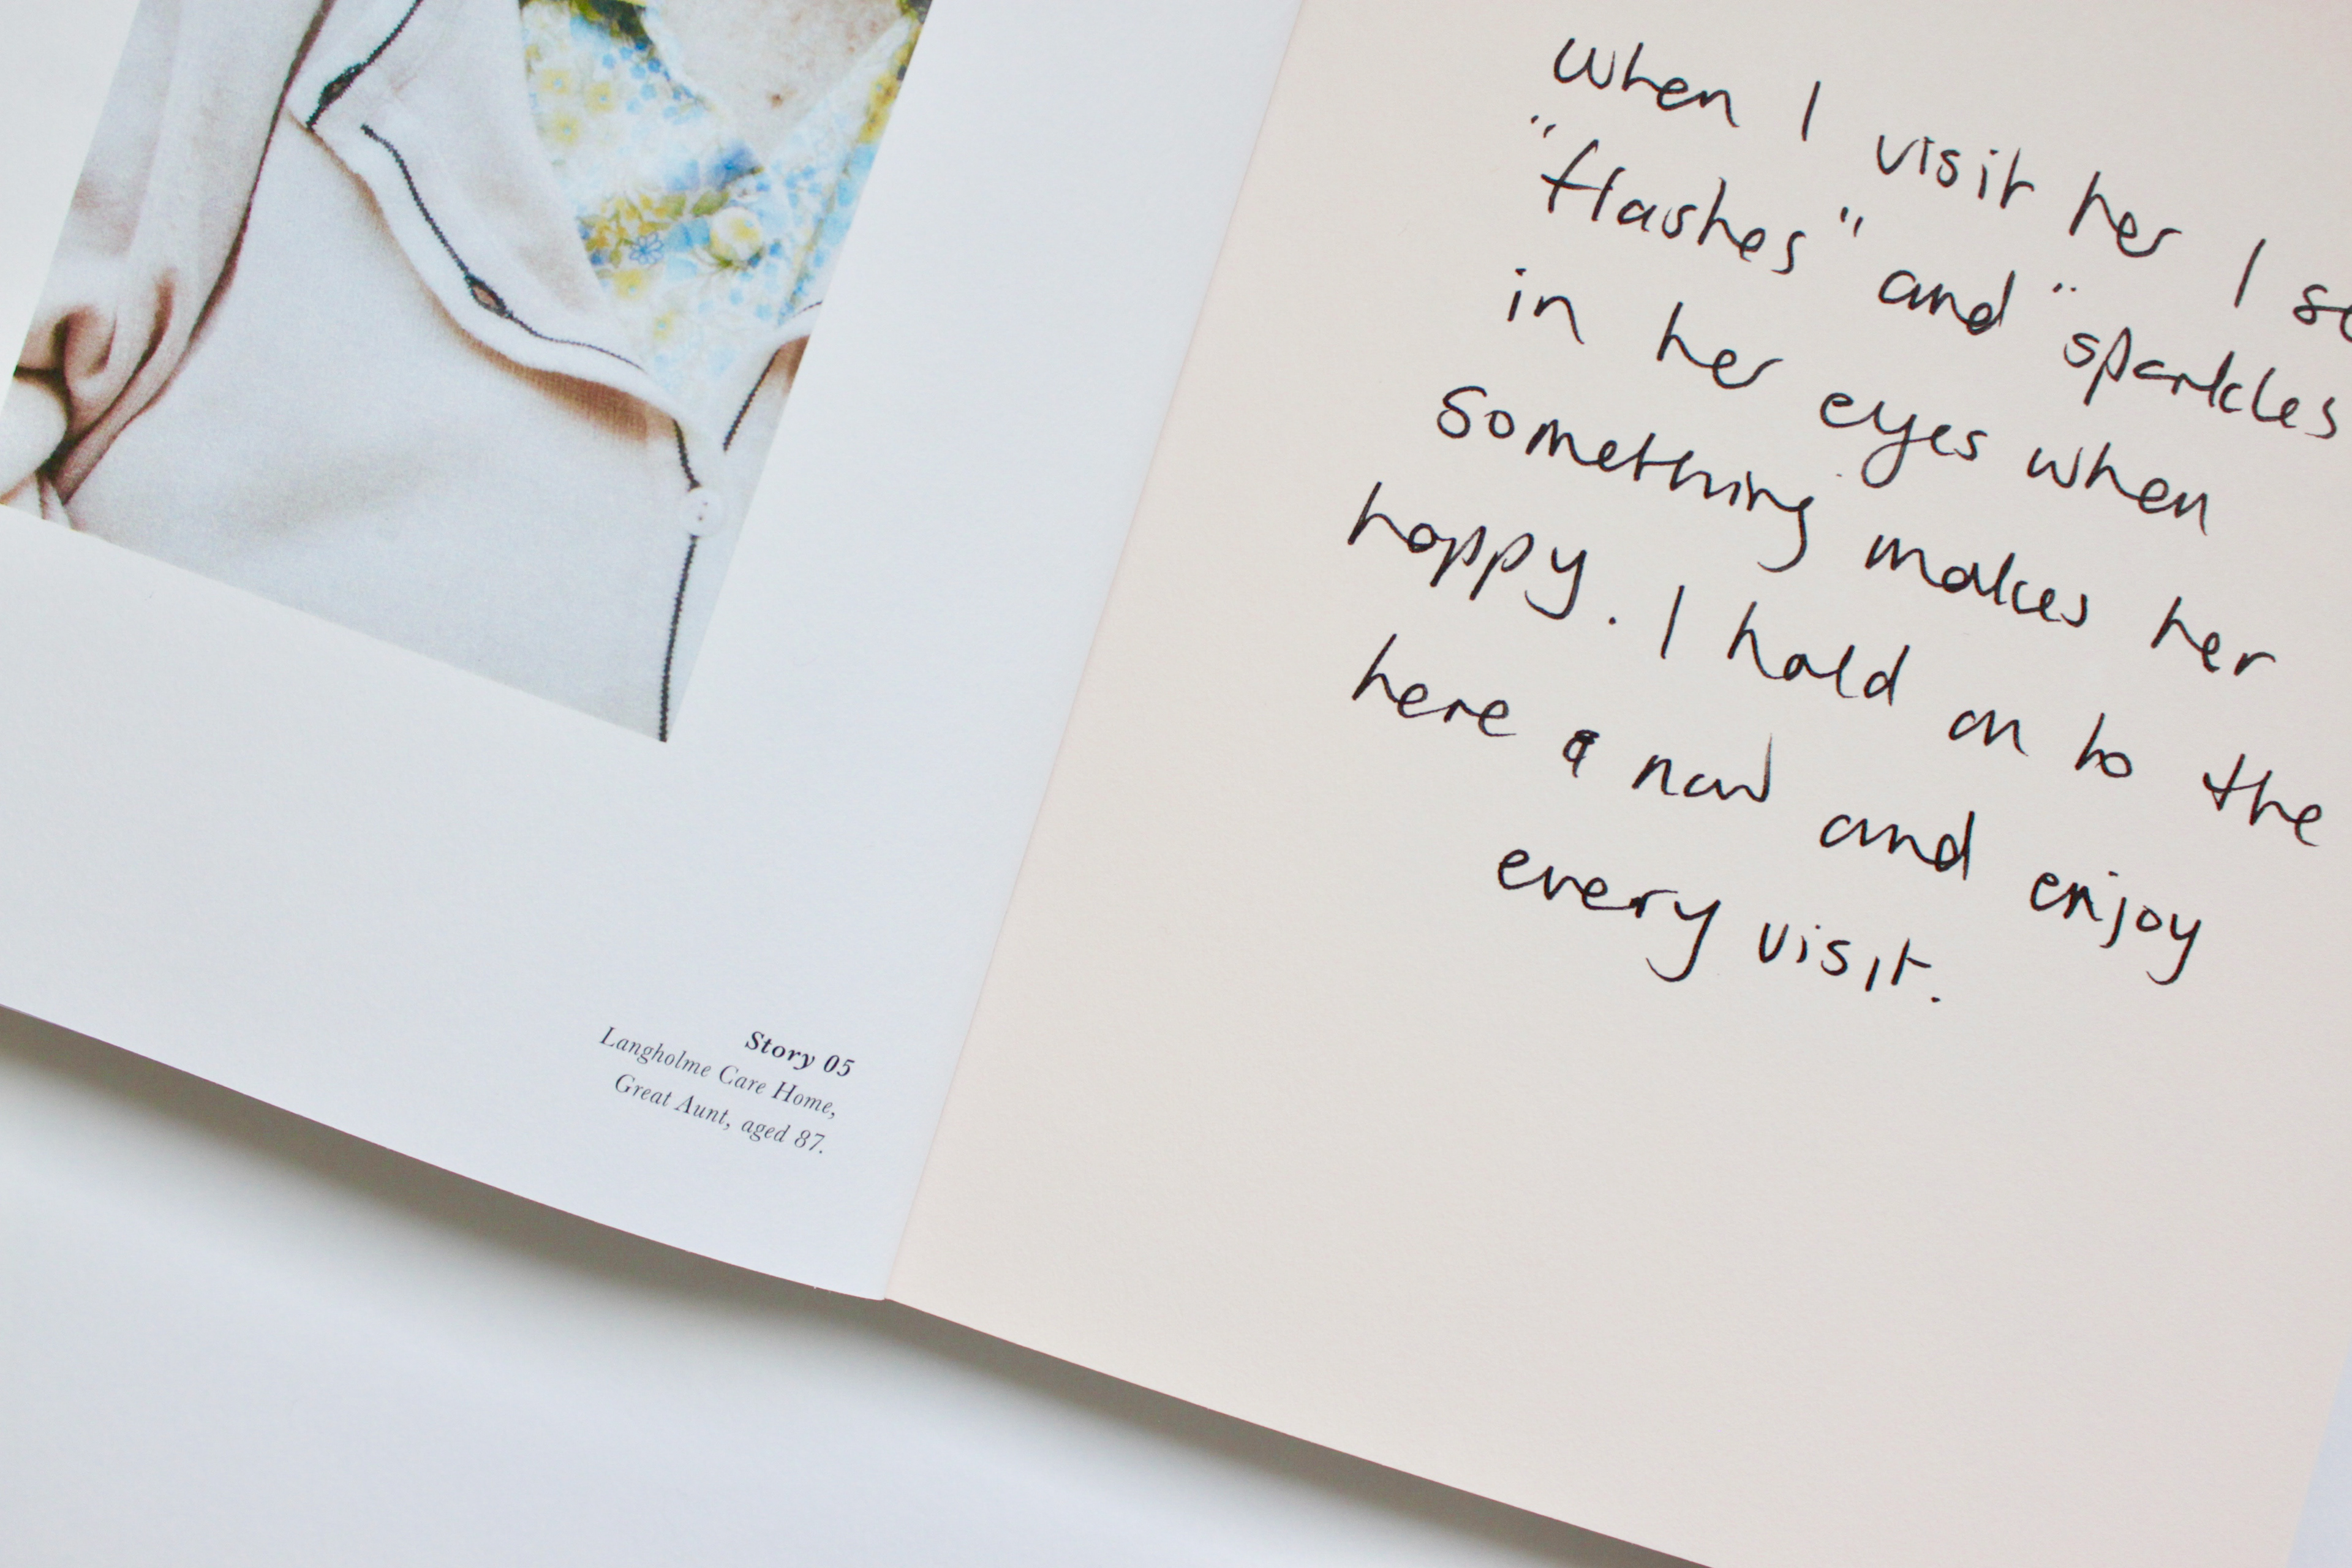 Story 05
Langholme Care Home,
Great Aunt, aged 87.
When I visit her I
"flashes" and "sparkles
in her eyes when
something makes her
happy. I hold on to the
here & now and enjoy
every visit.